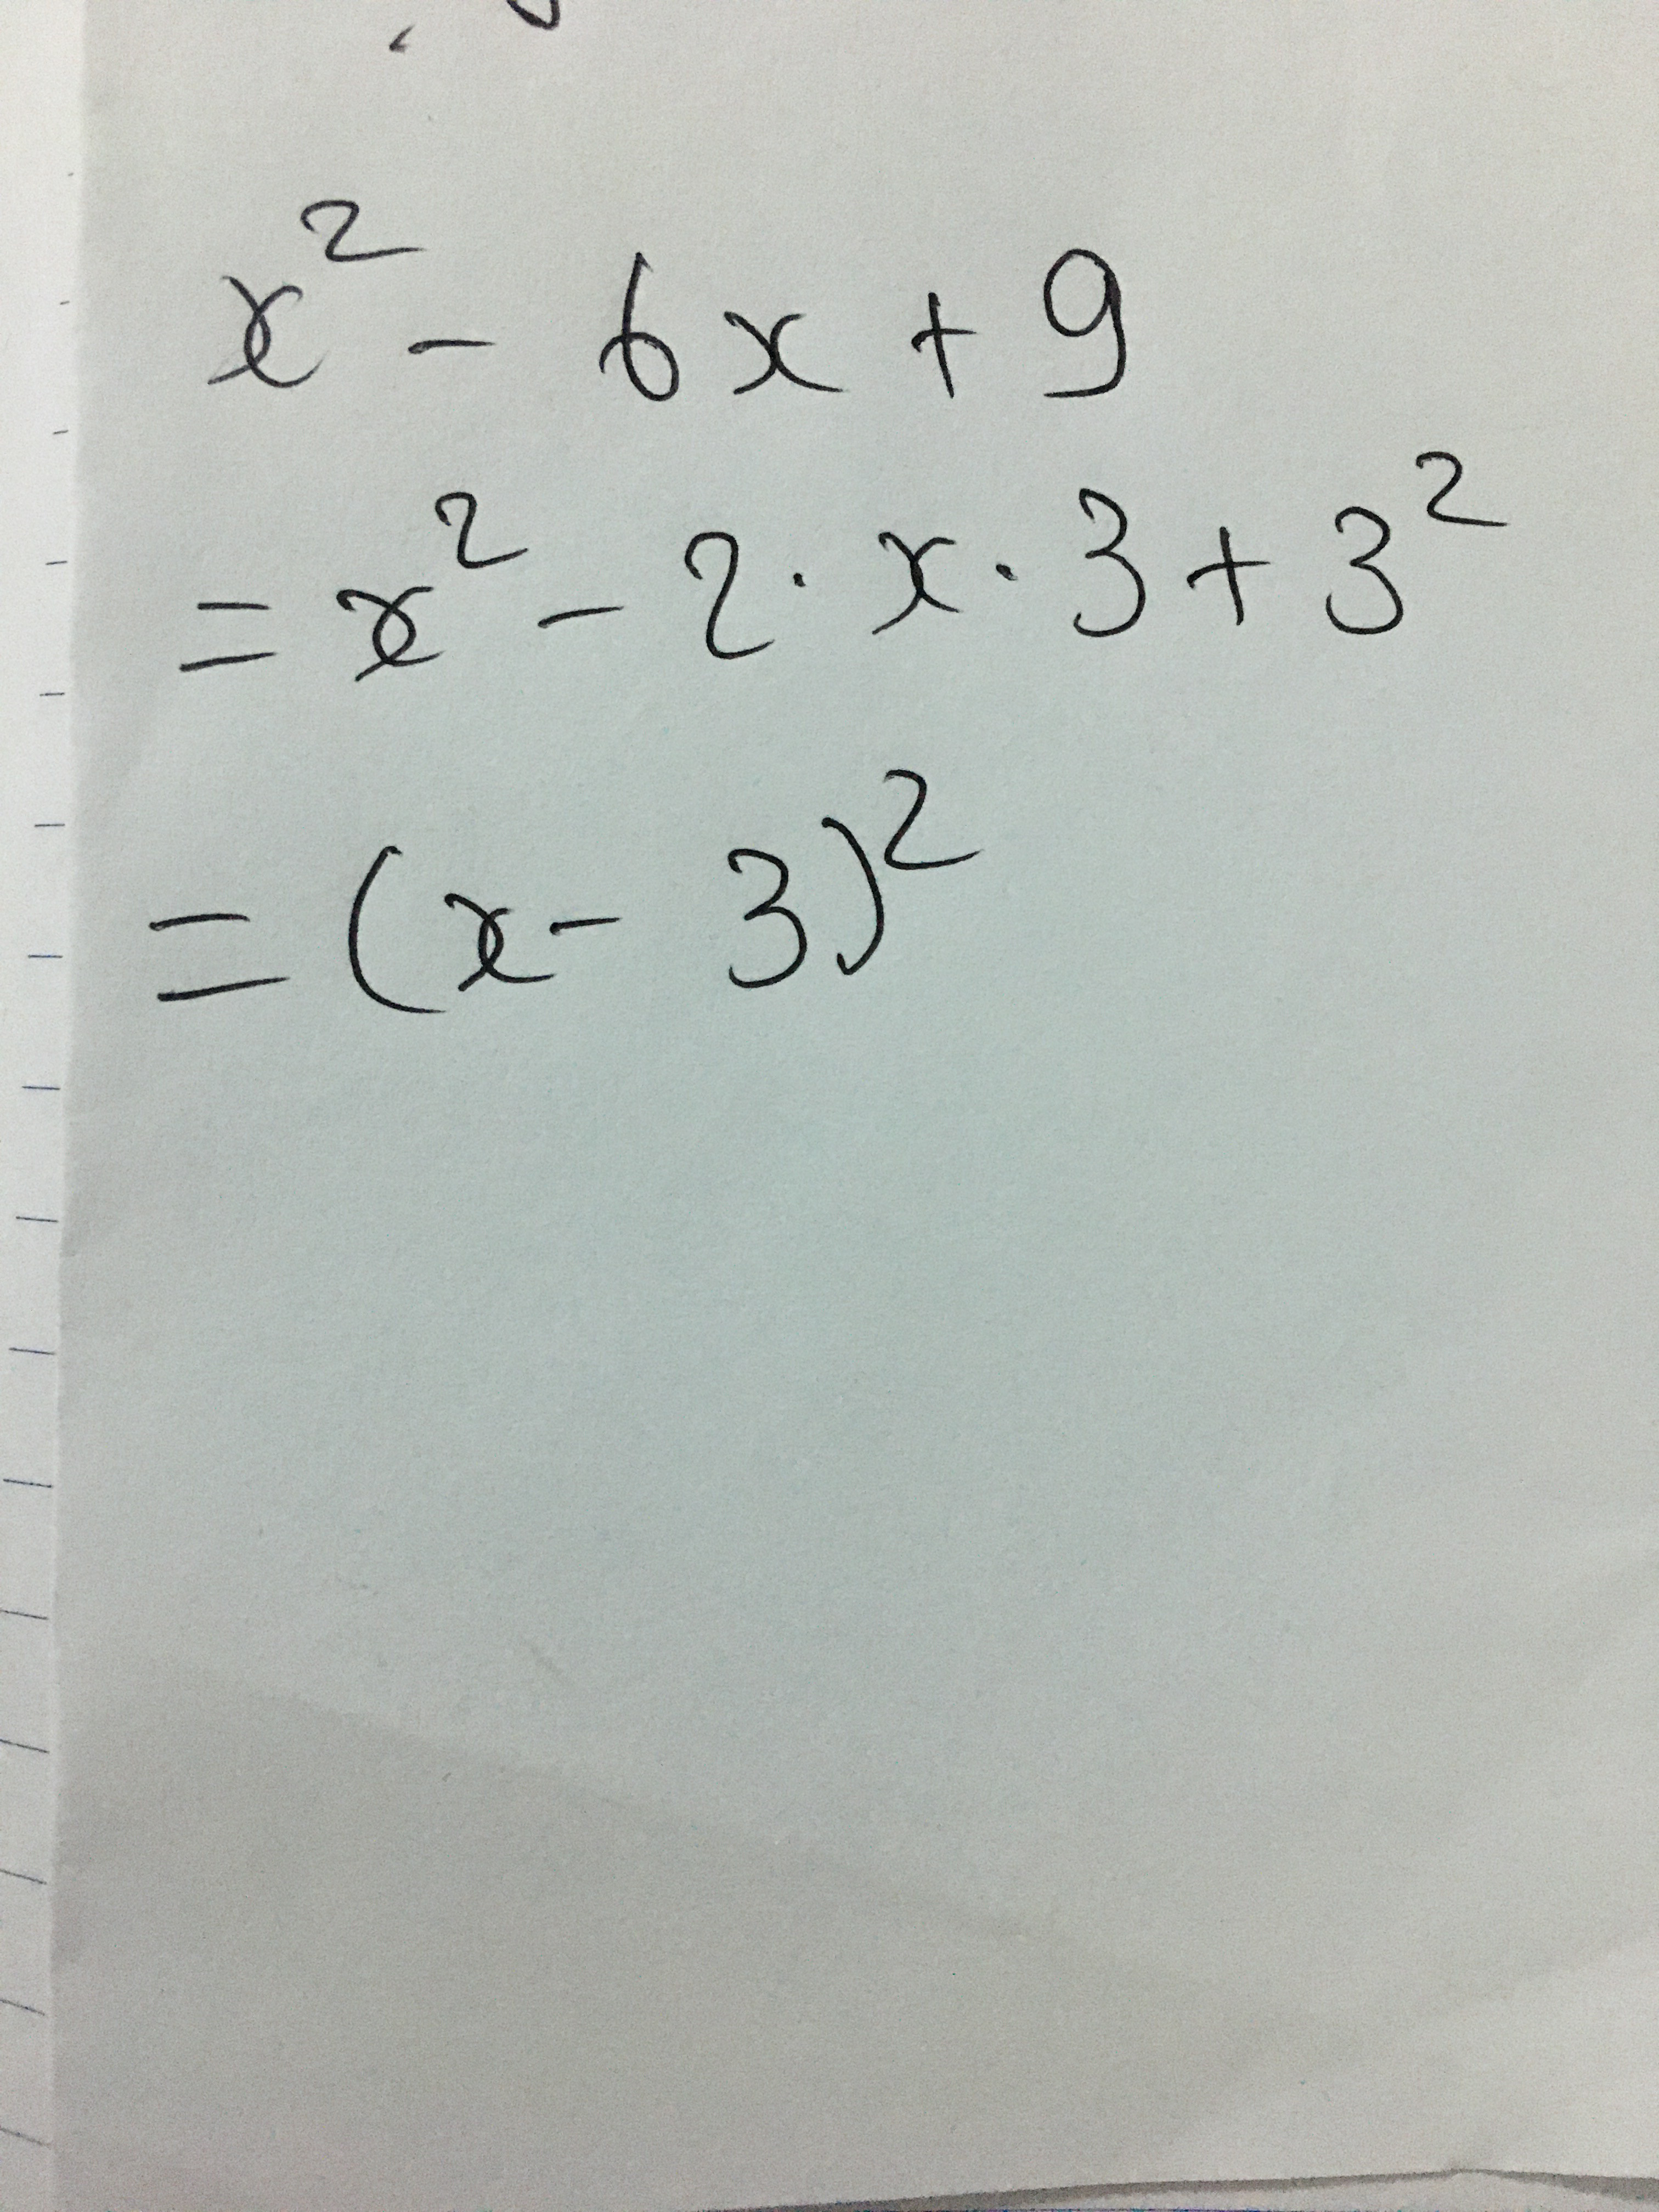 x² - 6x + 9
= x² - 2 · x · 3 + 3²
= (x - 3)²